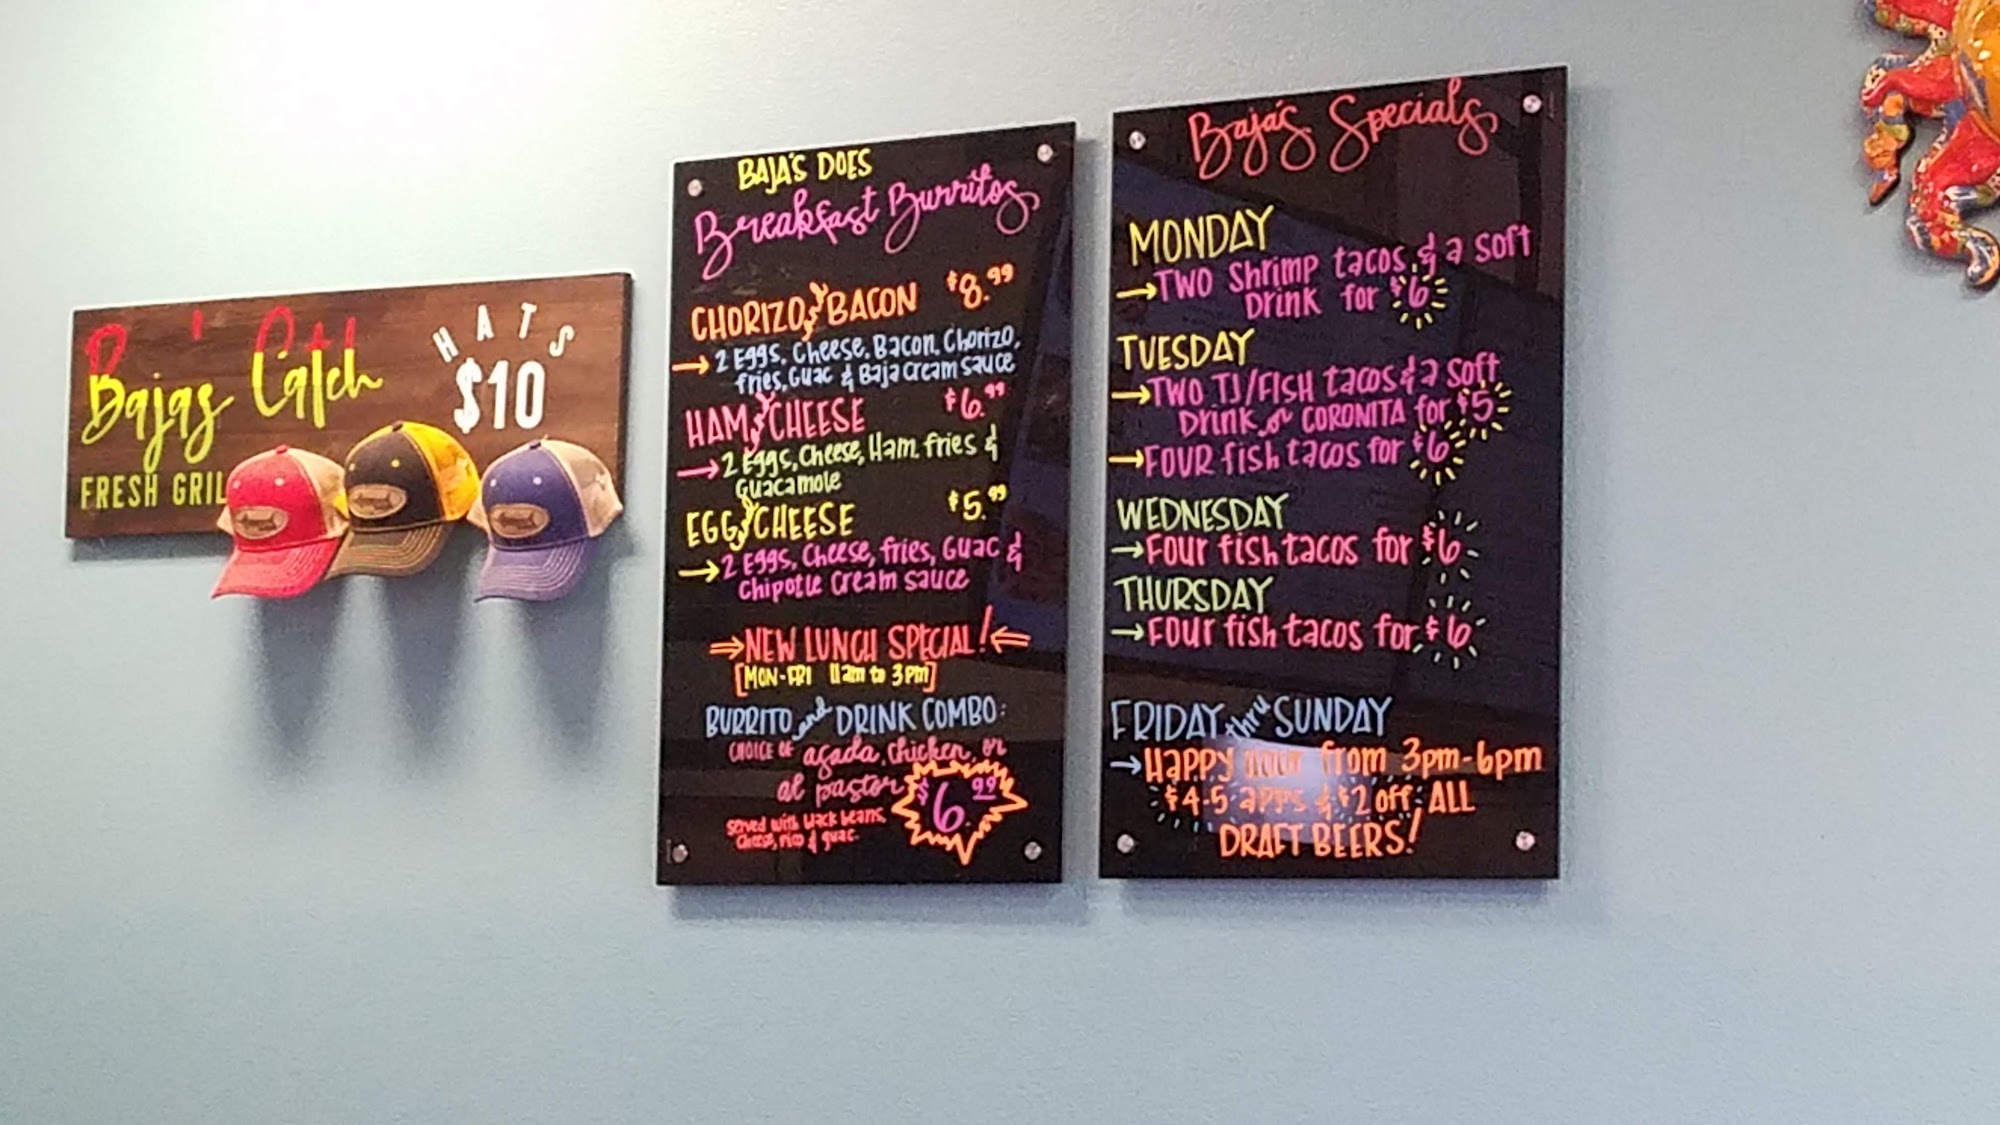 Baja's Catch
FRESH GRIL
HATS
$10
BAJA'S DOES
Breakfast Burritos
CHORIZO & BACON $8.99
→ 2 Eggs, Cheese, Bacon, Chorizo,
fries, Guac & Baja Cream sauce
HAM & CHEESE $6.99
→ 2 Eggs, Cheese, Ham, fries &
Guacamole
EGG & CHEESE $5.99
→ 2 Eggs, Cheese, fries, Guac &
Chipotle Cream sauce
⇒ NEW LUNCH SPECIAL! ⇐
[MON-FRI 11am to 3pm]
BURRITO and DRINK COMBO:
CHOICE OF asada, chicken, or
al pastor
$6.99
served with black beans,
cheese, pico & guac.
Baja's Specials
MONDAY
→ TWO Shrimp tacos & a soft
Drink for $6
TUESDAY
→ TWO TJ/FISH tacos & a soft
Drink or CORONITA for $5
→ FOUR fish tacos for $6
WEDNESDAY
→ FOUR fish tacos for $6
THURSDAY
→ FOUR fish tacos for $6
FRIDAY thru SUNDAY
→ Happy Hour from 3pm-6pm
$4-5 apps & $2 off ALL
DRAFT BEERS!